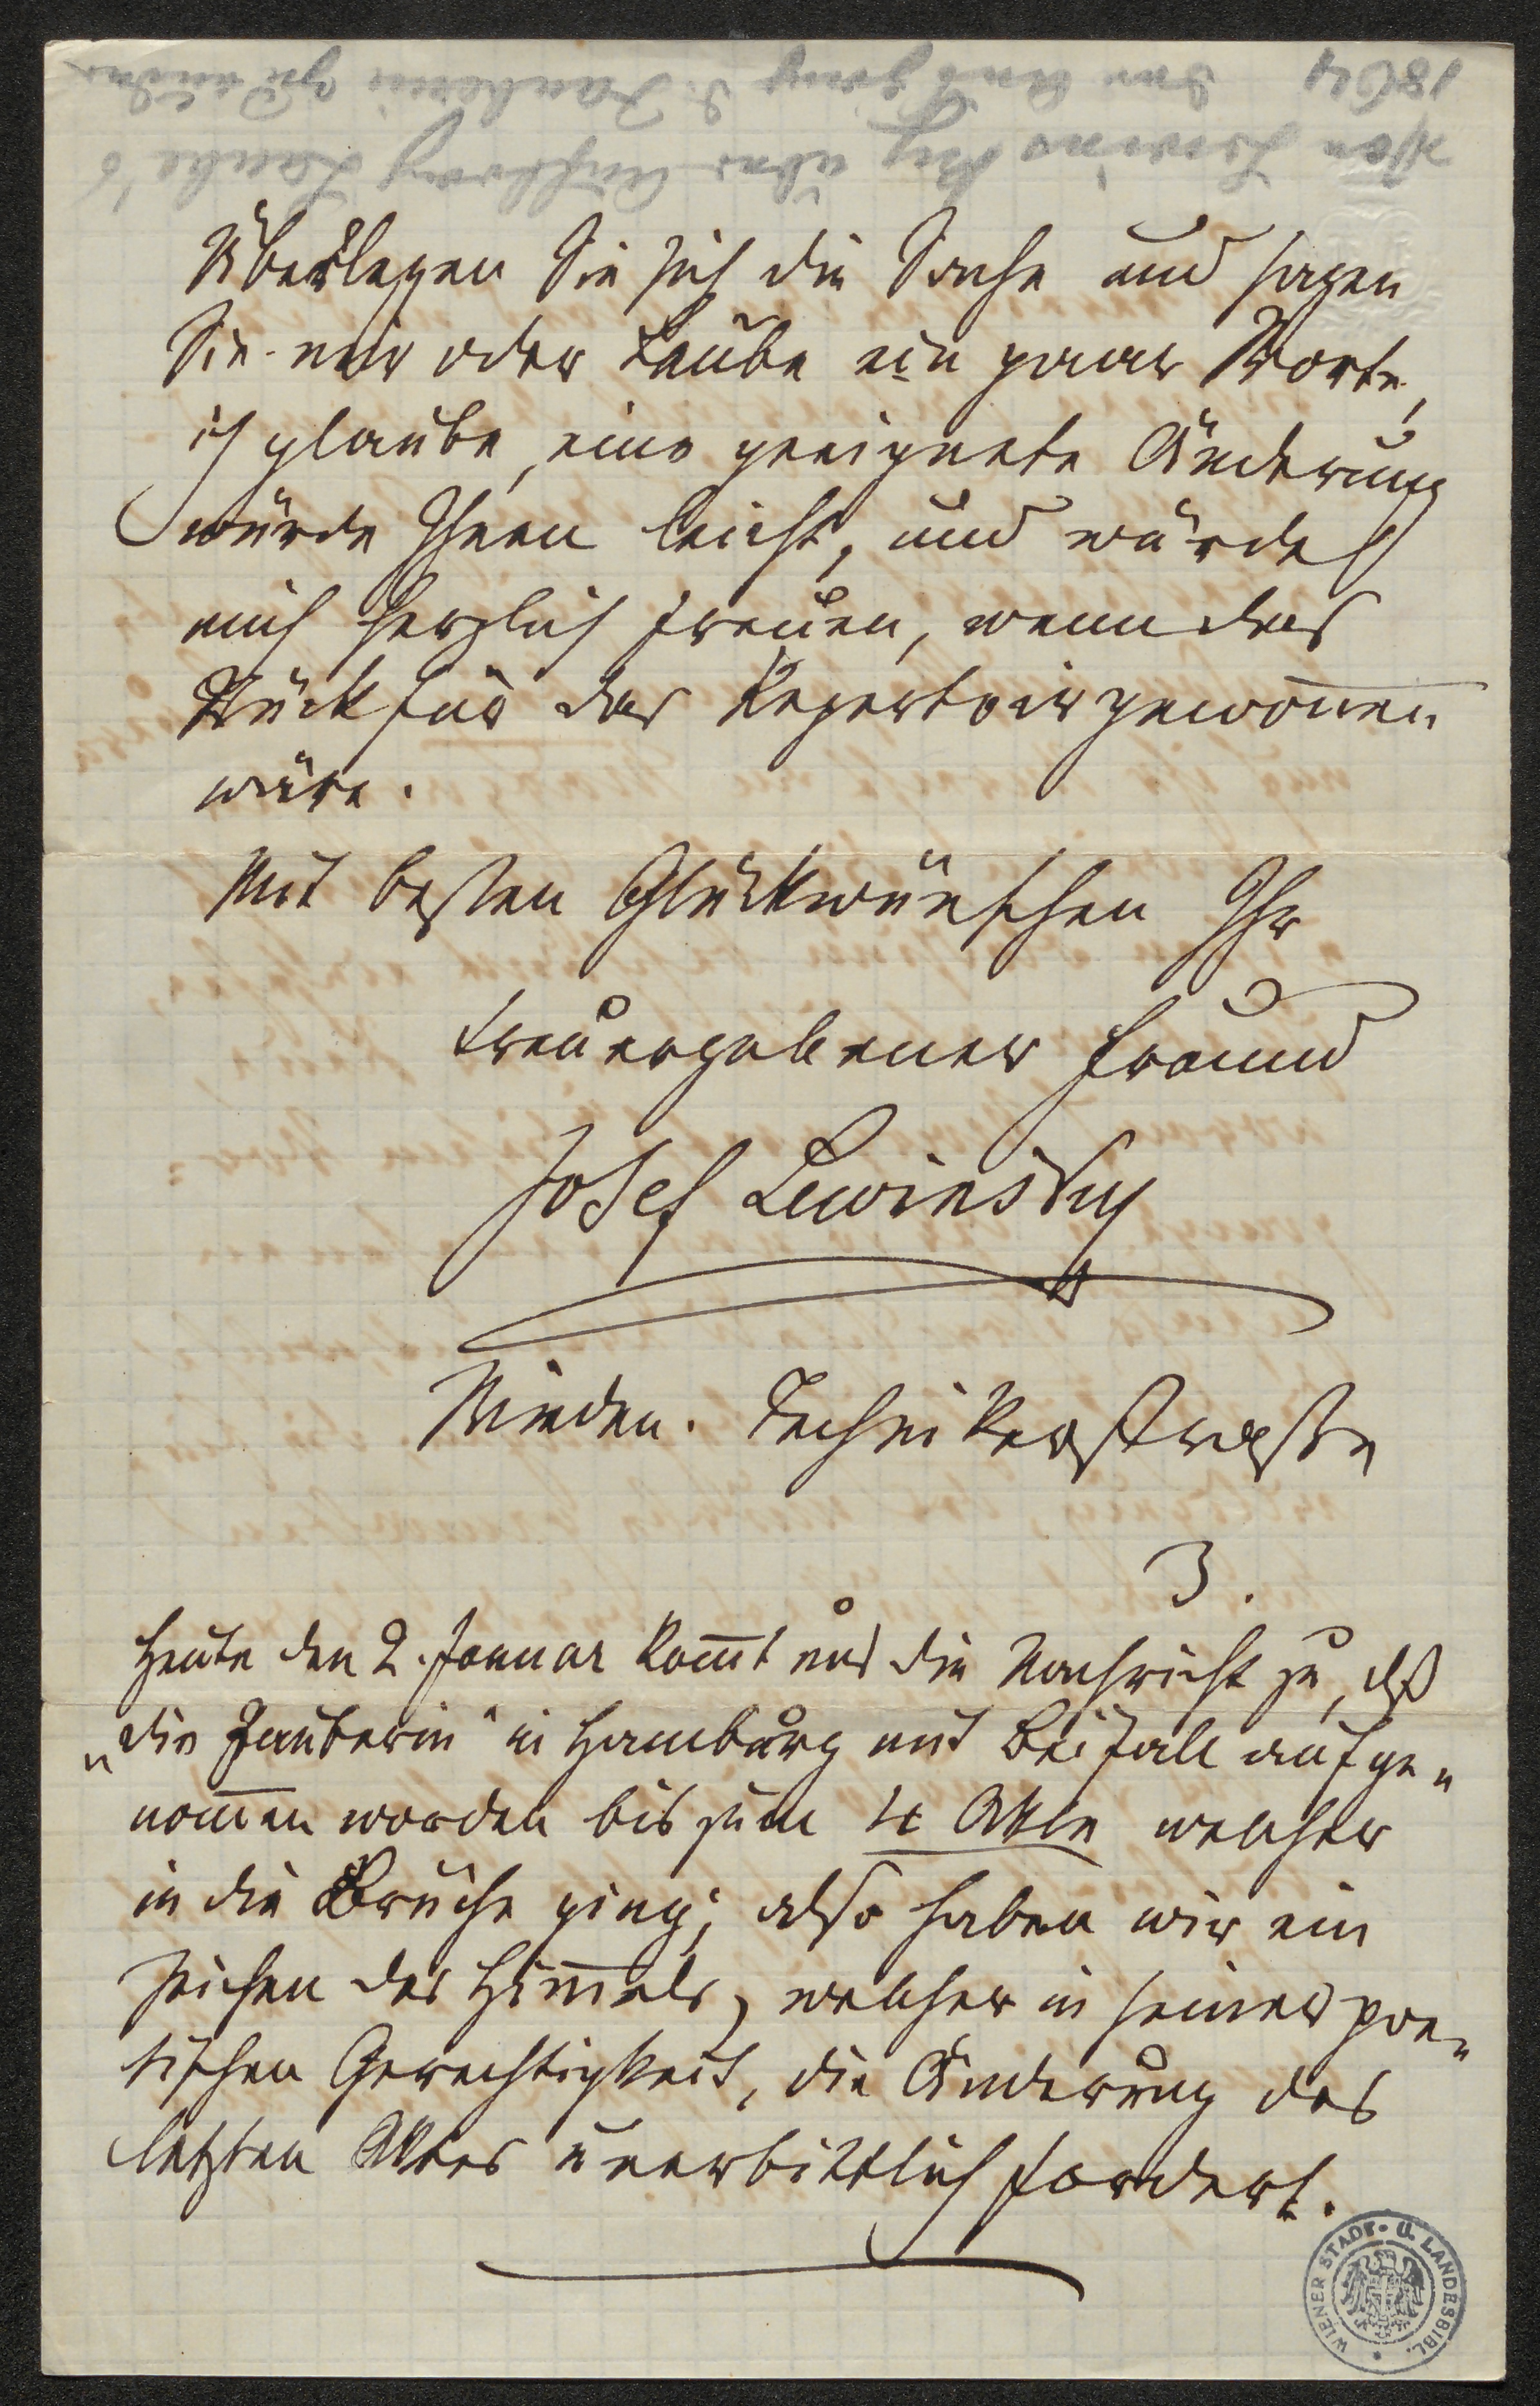 Von Lewinsky über Auftrag Laube's
den Ausgang d. Zauberin zu ändern
1864
Überlegen Sie sich die Sache und sagen
Sie mir oder Laube ein paar Worte,
ich glaube, eine geeignete Änderung
würde Ihnen leicht, und würde es
mich herzlich freuen, wenn das
Stück für das Repertoir gewon̅en
wäre.
Mit besten Glückwünschen Ihr
treuergebener Freund
Josef Lewinsky
Wieden. Technikerstrasse
3.
Heute den 2. Januar kom̅t uns die Nachricht zu, dß
„die Zauberin“ in Hamburg mit Beifall aufge„
nom̅en worden bis zum 4 Akte welcher
in die Brüche ging; also haben wir ein
Zeichen des Him̅els, welcher in seiner poe„
tischen Gerechtigkeit, die Änderung des
letzten Aktes unerbittlich fordert.
WIENER STADT- U. LANDESBIBL.